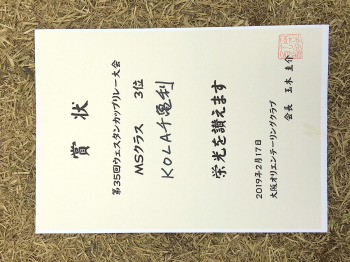 賞状
第35回ウェスタンカップリレー大会
MSクラス 3位
KOLA千亀利
栄光を讃えます
2019年2月17日
大阪オリエンテーリングクラブ
会長 玉木 圭介